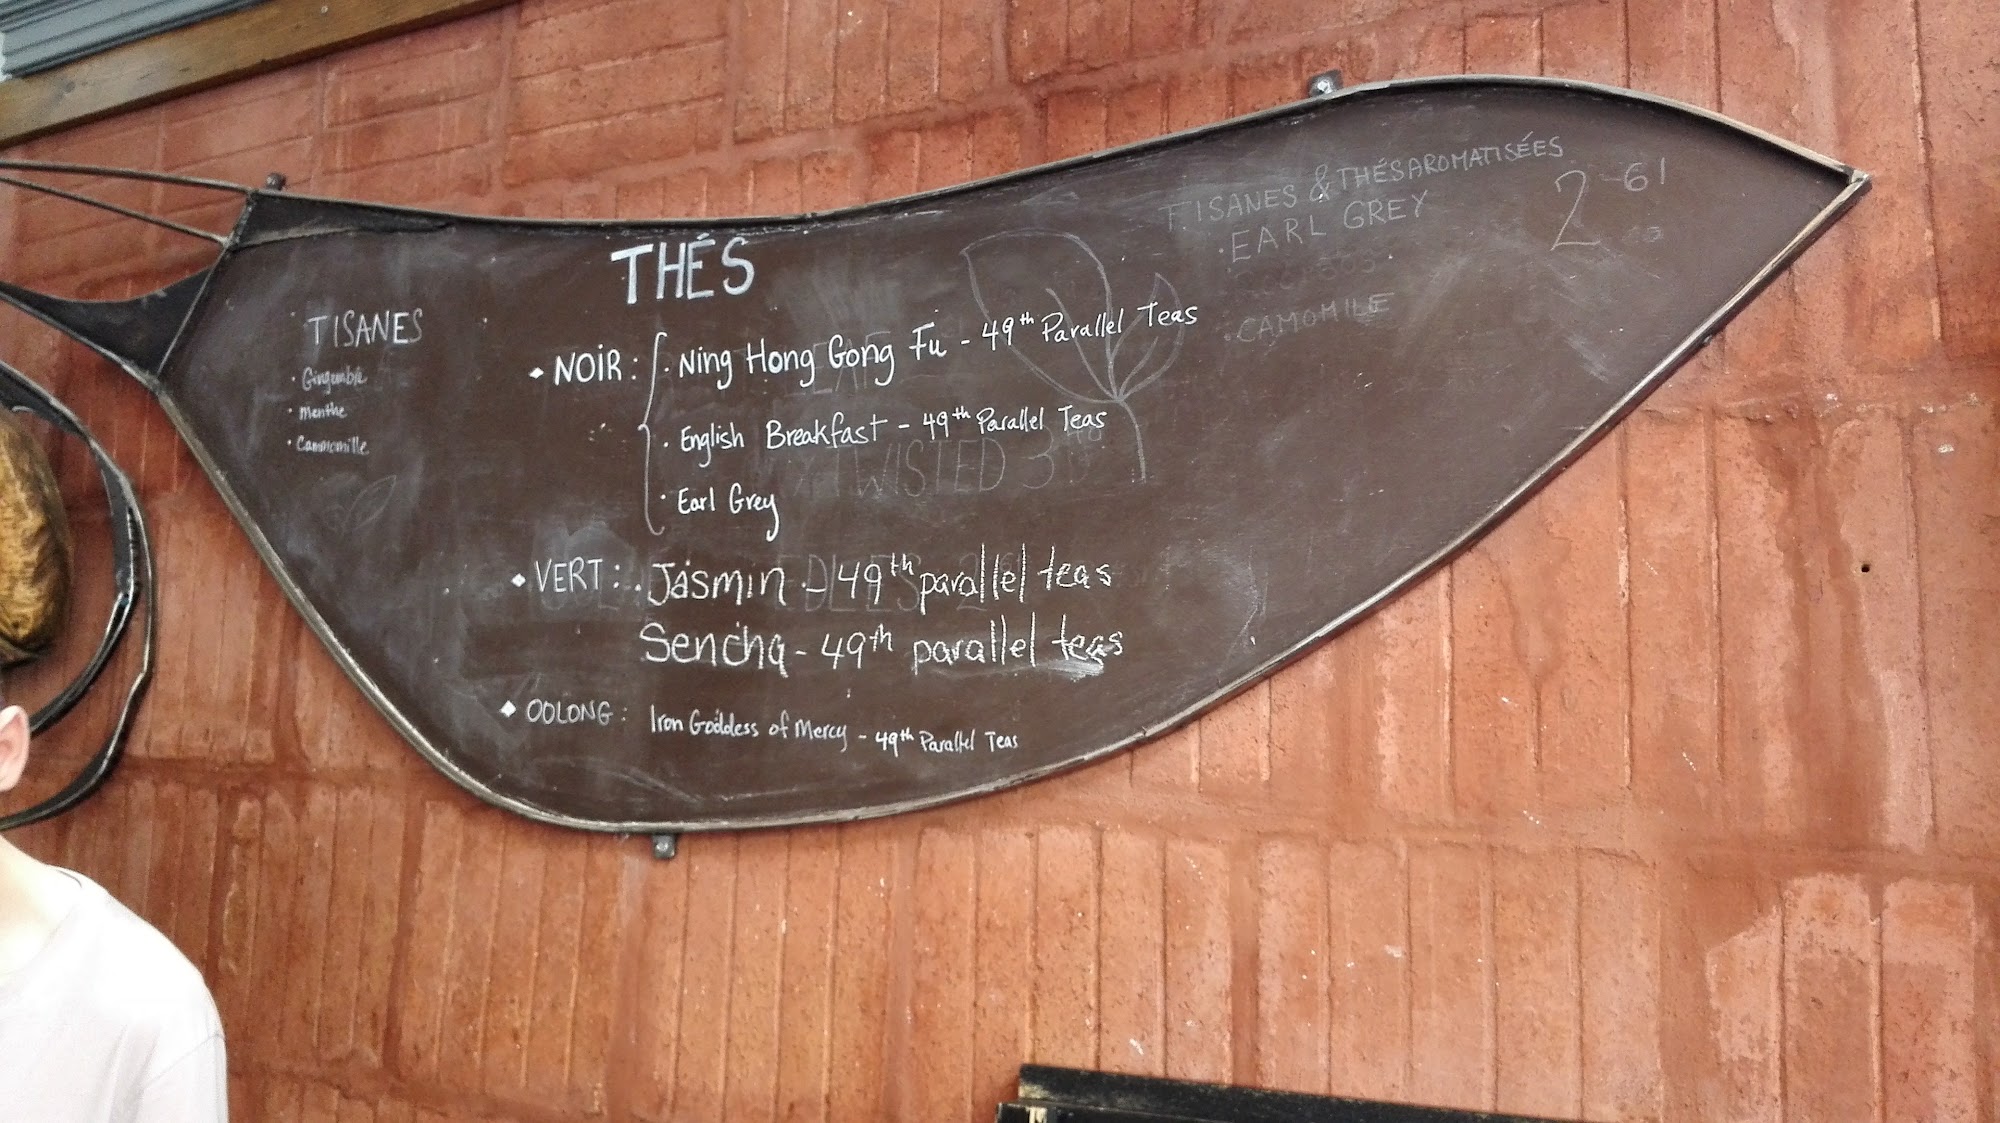 THÉS
TISANES
· Gingembre
· Menthe
· Cammomille
NOIR : · Ning Hong Gong Fu - 49th Parallel Teas
· English Breakfast - 49th Parallel Teas
· Earl Grey
VERT : · Jasmin - 49th parallel teas
Sencha - 49th parallel teas
OOLONG : Iron Goddess of Mercy - 49th Parallel Teas
TISANES & THÉS AROMATISÉES
· EARL GREY
· CAMOMILE
2-61
TWISTED 3